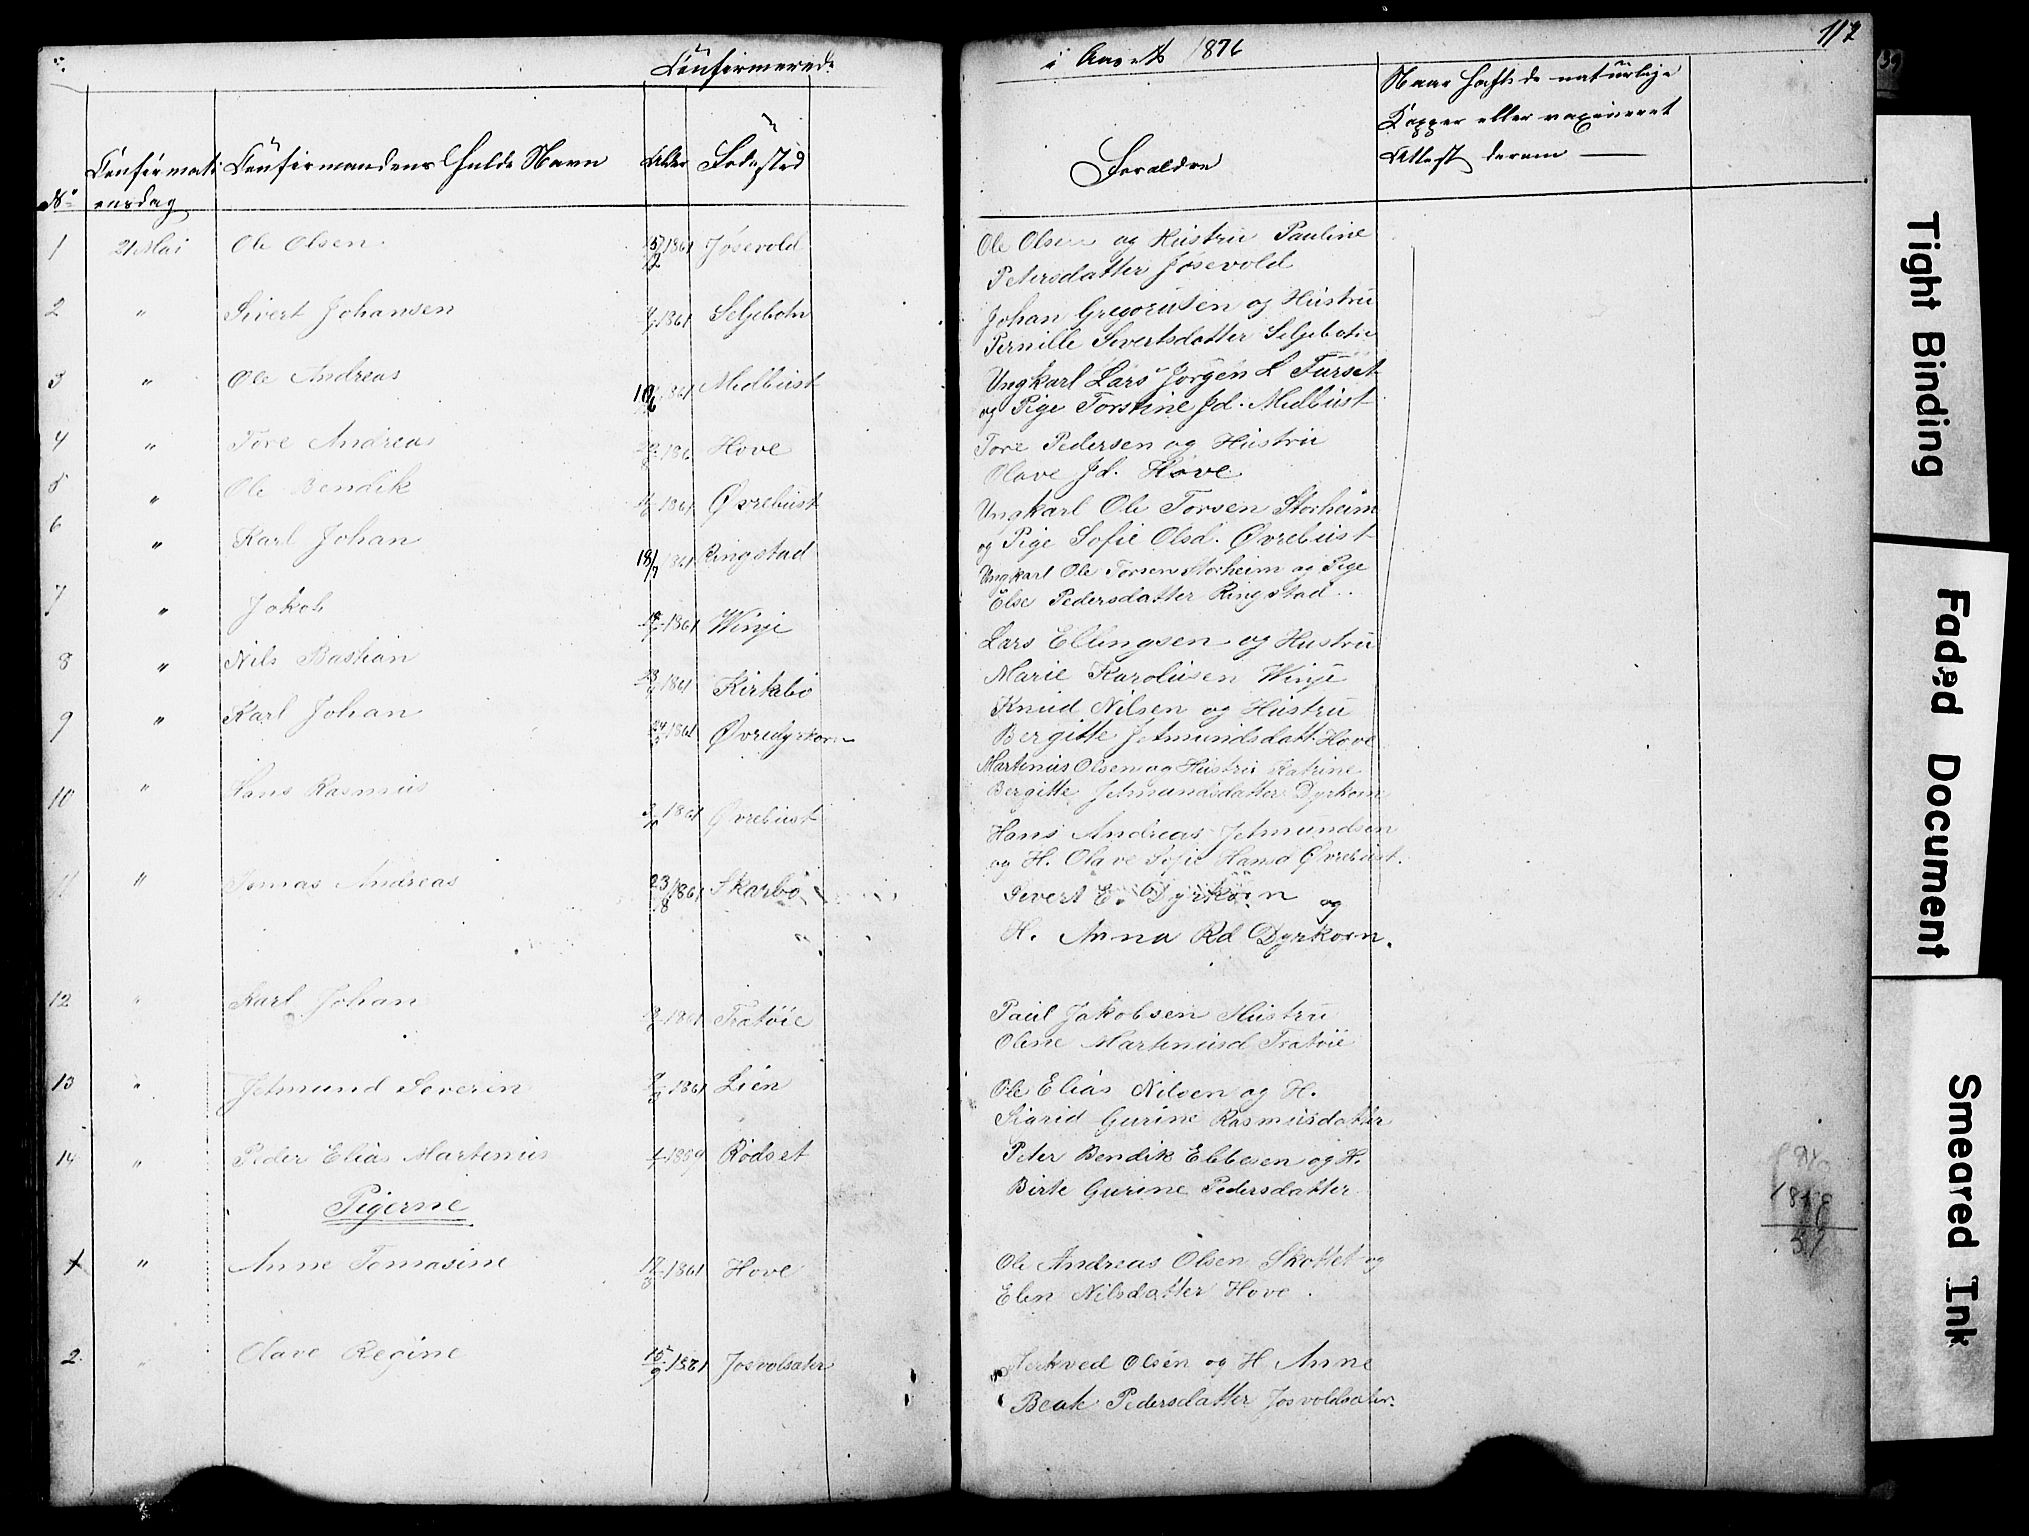 Confirmerede
i Aaret 1876
117
No
Confirmati
onsdag
Confirmandens fulde Navn
Alder
Fødested
Forældre
Naar haft de naturlige
Kopper eller vaxineret
Attest derom —
1 21 Mai Ole Olsen 1861 Jøsevold
Ole Olsen og Hustru Pauline
Petersdatter Jøsevold
2 " Sivert Johansen 1861 Seljebotn
Johan Gregoriusen og Hustru
Pernille Sivertsdatter Seljebotn
3 " Ole Andreas 10/6 1861 Midbust
Ungkarl Lars Jørgen L Furset
og Pige Torstine Jd. Midbust
4 " Tore Andreas Hove
Tore Pedersen og Hustru
Olave Jd. Hove
5 " Ole Bendik 1861 Øvrebust
Ungkarl Ole Torsen Storheim
og Pige Sofie Olsd. Øvrebust
6 " Karl Johan 18/7 1861 Ringstad
Ungkarl Ole Torsen Storheim og Pige
Else Pedersdatter Ringstad
7 " Jakob 1861 Winje
Lars Ellingsen og Hustru
Marie Karolusen Winje
8 " Nils Bastian 1861 Kirkebø
Knud Nilsen og Hustru
Bergitte Jetmundsdatt. Hove
9 " Karl Johan 1861 Øvredyrkorn
Martinus Olsen og Hustru Katrine
Bergitte Jetmundsdatter Dyrkorn
10 " Hans Rasmus 1861 Øvrebust
Hans Andreas Jetmundsen
og H. Olave Sofie Hansd Øvrebust.
11 " Tomas Andreas 23/8 1861 Skarbø
Sivert E. Dyrkorn og
H. Anna Rd Dyrkorn.
12 " Karl Johan 1861 Tratøie
Paul Jakobsen Hustru
Oline Martinusd Tratøie
13 " Jetmund Severin 1861 Lien
Ole Elias Nilsen og H.
Sigrid Gurine Rasmusdatter
14 " Peder Elias Martinus 1859 Rødset
Peter Bendik Ebbesen og H.
Birte Gurine Pedersdatter
Pigerne
1 " Anne Tomasine 1861 Hove
Ole Andreas Olsen Skottet og
Elen Nilsdatter Hove.
2. " Olave Regine 15/9 1861 Josvolsæter
Olsen og H Anne
Beate Pedersdatter Josvoldsæter.
Tight Binding
Faded Document
Smeared Ink